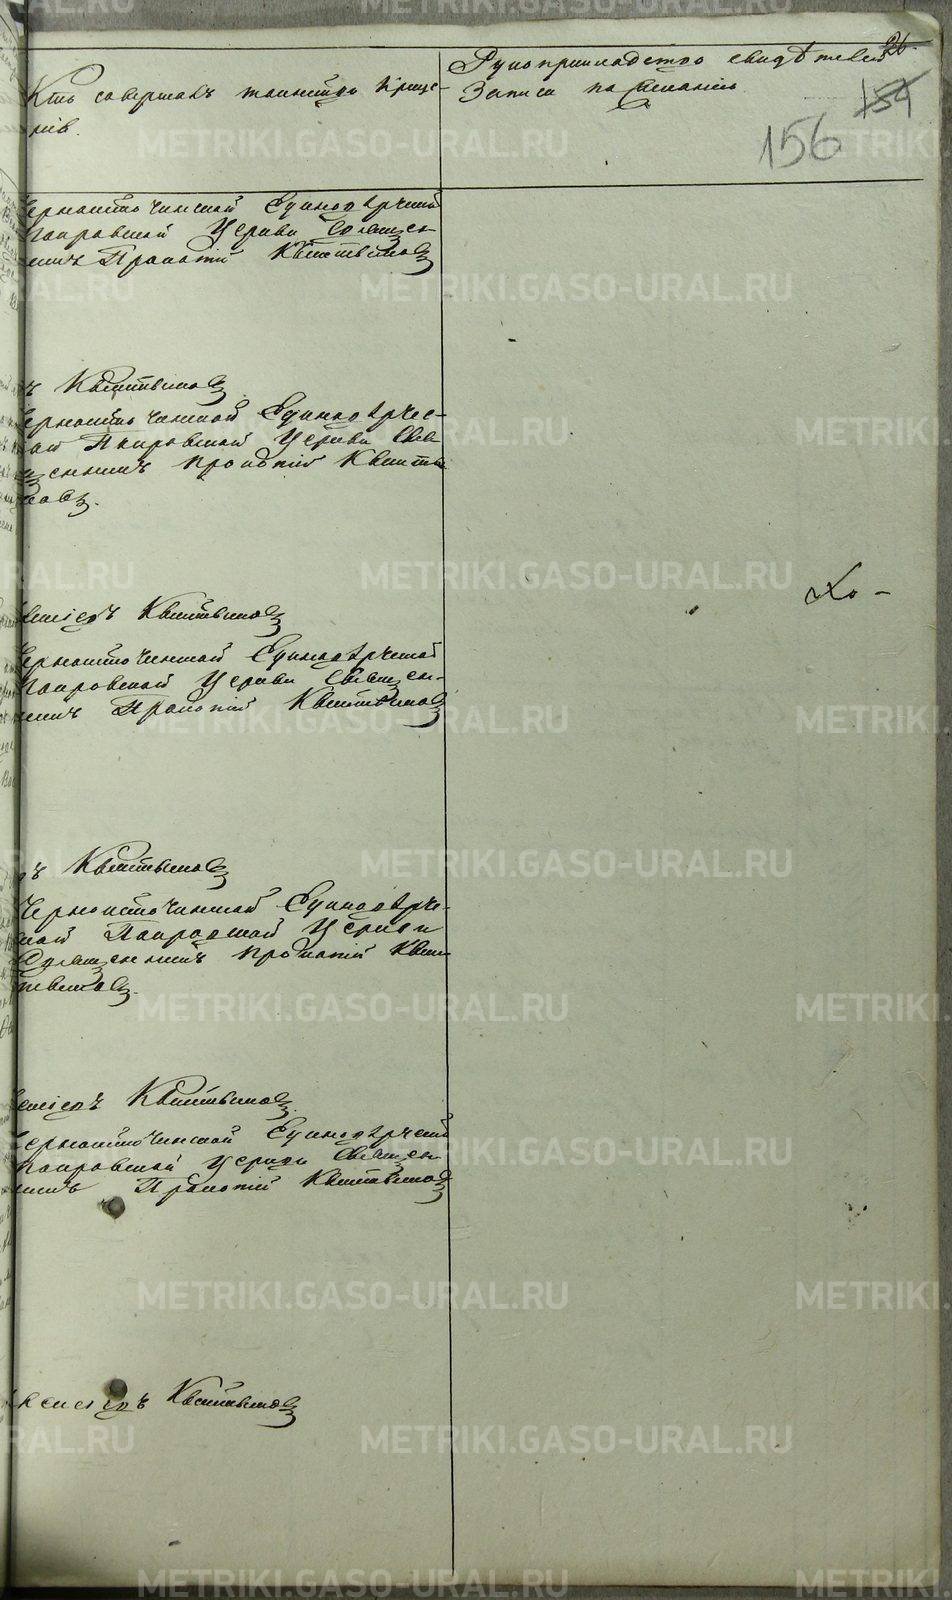 26.
154
156
Кто совершалъ таинство Креще-
нія.
Рукоприкладство свидѣтелей
Записи по желанію
Черноисточинской Единовѣрческой
Покровской Церкви Священ-
никъ Прокопій Кыштымовъ
Кыштымовъ
Черноисточинской Единовѣрчес-
кой Покровской Церкви Свя-
щенникъ Прокопій Кышты-
мовъ.
Кыштымовъ
Черноисточинской Единовѣрческой
Покровской Церкви Священ-
никъ Прокопій Кыштымовъ
Кыштымовъ
Черноисточинской Единовѣрче-
ской Покровской Церкви
Священникъ Прокопій Кыш-
тымовъ.
Кыштымовъ
Черноисточинской Единовѣрческой
Покровской Церкви Священ-
никъ Прокопій Кыштымовъ
Кыштымовъ
METRIKI.GASO-URAL.RU